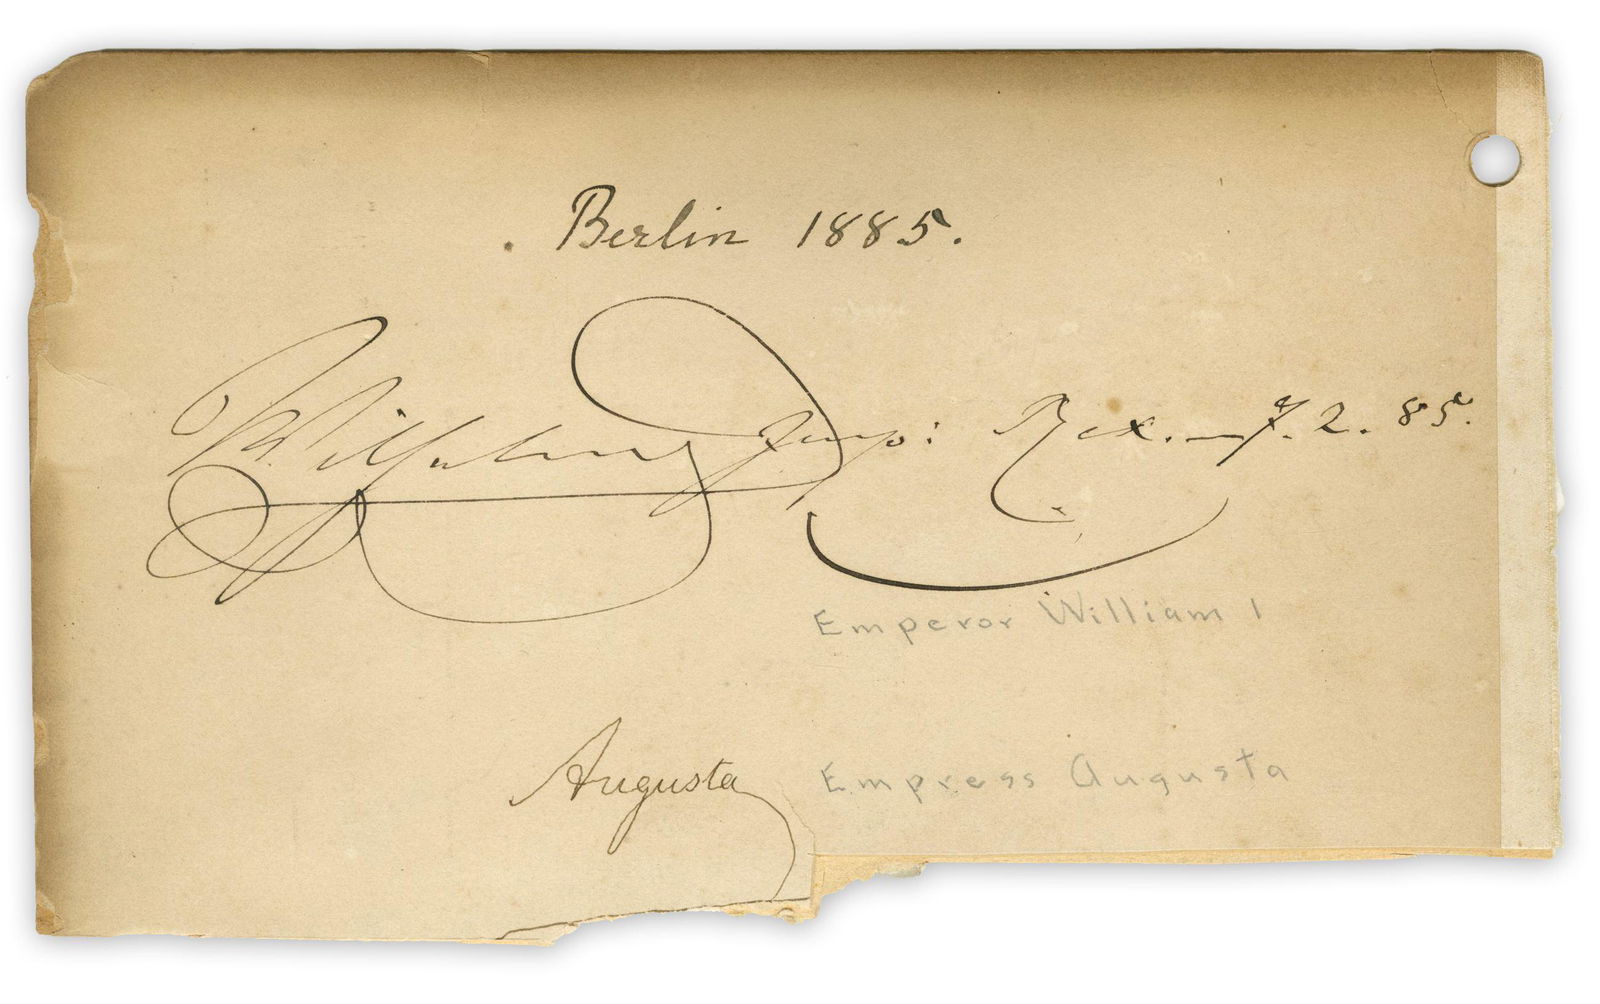 Berlin 1885.
Wilhelm Imp: Rex. 7. 2. 85.
Emperor William I
Augusta Empress Augusta